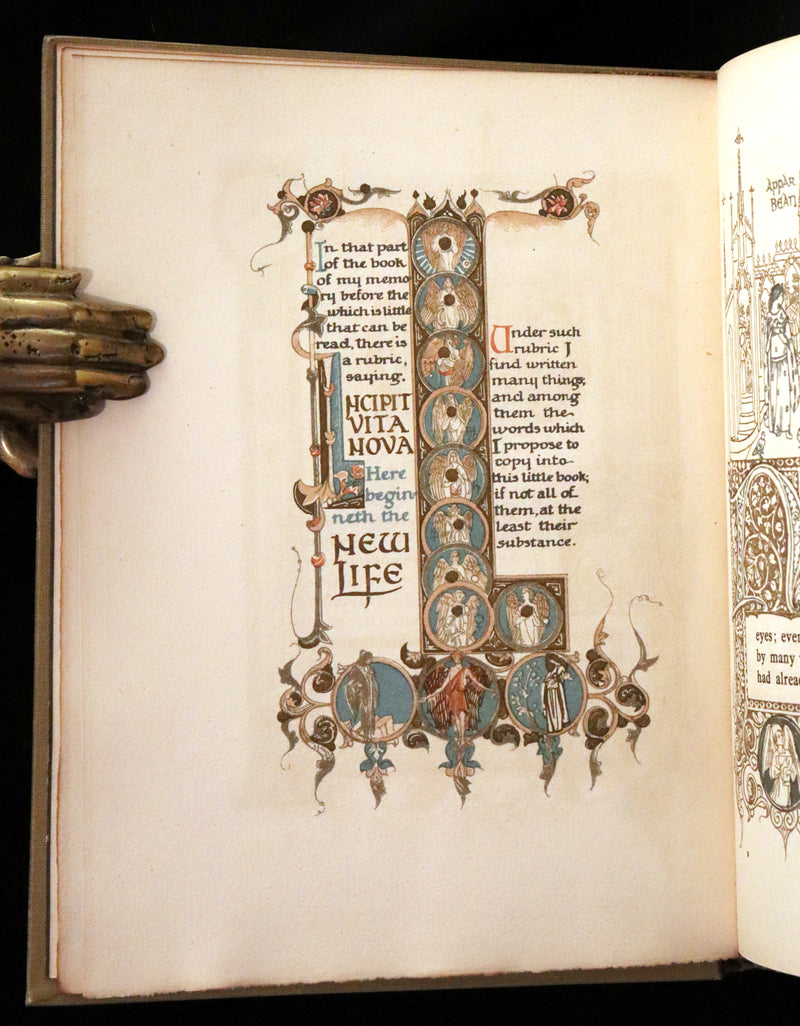 In that part
of the book
of my memo
ry before the
which is little
that can be
read, there is
a rubric,
saying.
INCIPIT
VITA
NOVA
Here
begin
neth the
NEW
LIFE
Under such
rubric I
find written
many things;
and among
them the
words which
I propose to
copy into
this little book;
if not all of
them, at the
least their
substance.
APPAR
BEAN
eyes; even
by many
had alrea
1